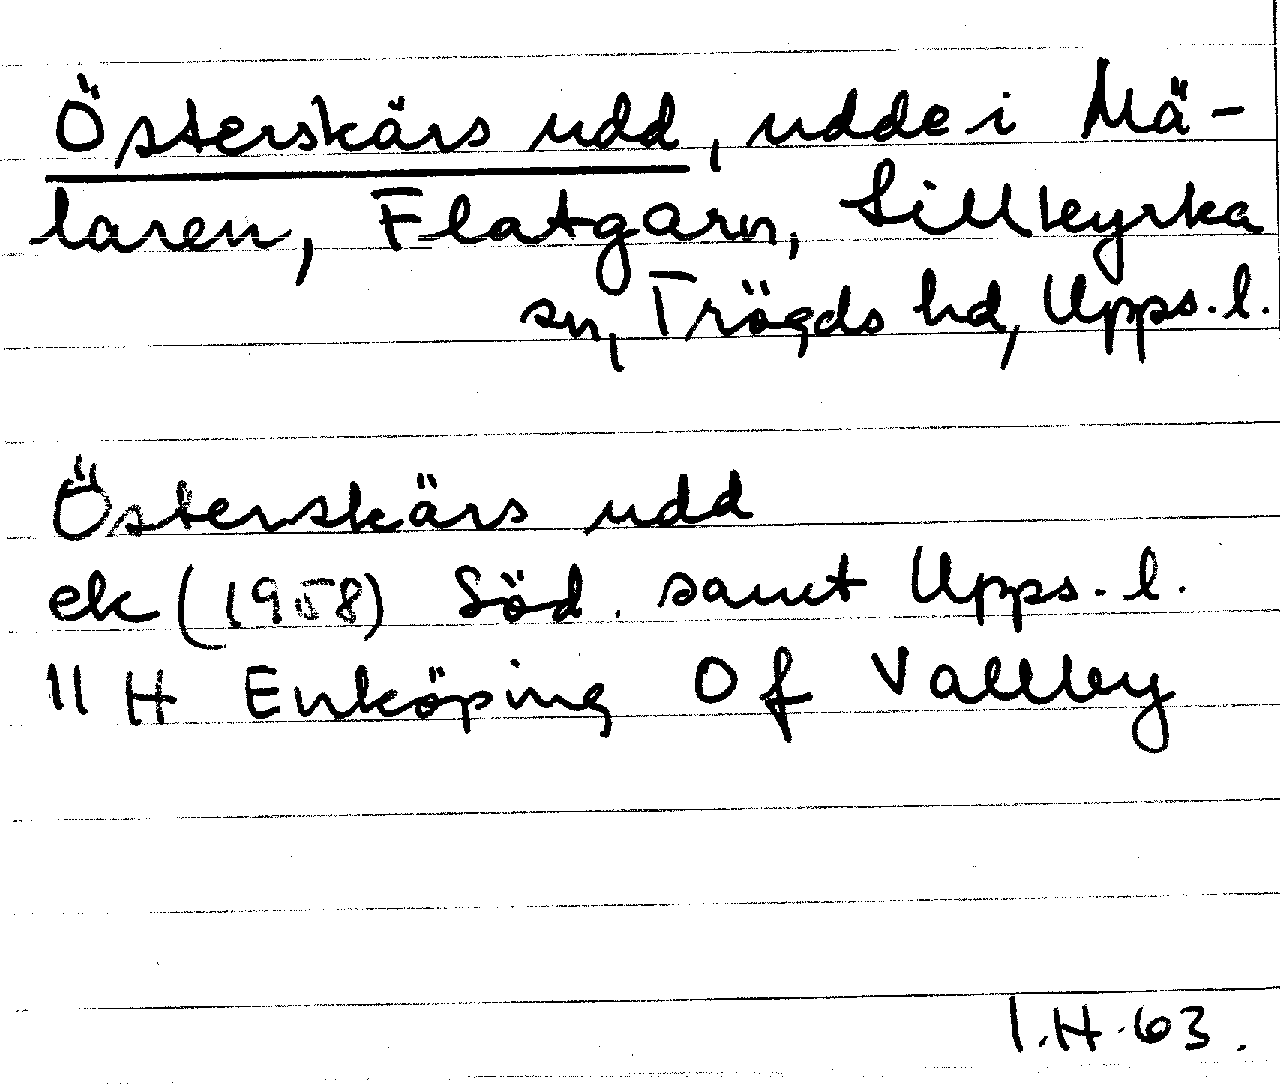 Österskärs udd, udde i Mä-
laren, Flatgarn, Lillkyrka
sn, Trögds hd, Upps. l.
Österskärs udd
ek (1958) Söd. samt Upps. l.
11 H Enköping Of Vallby
I.H. 63.